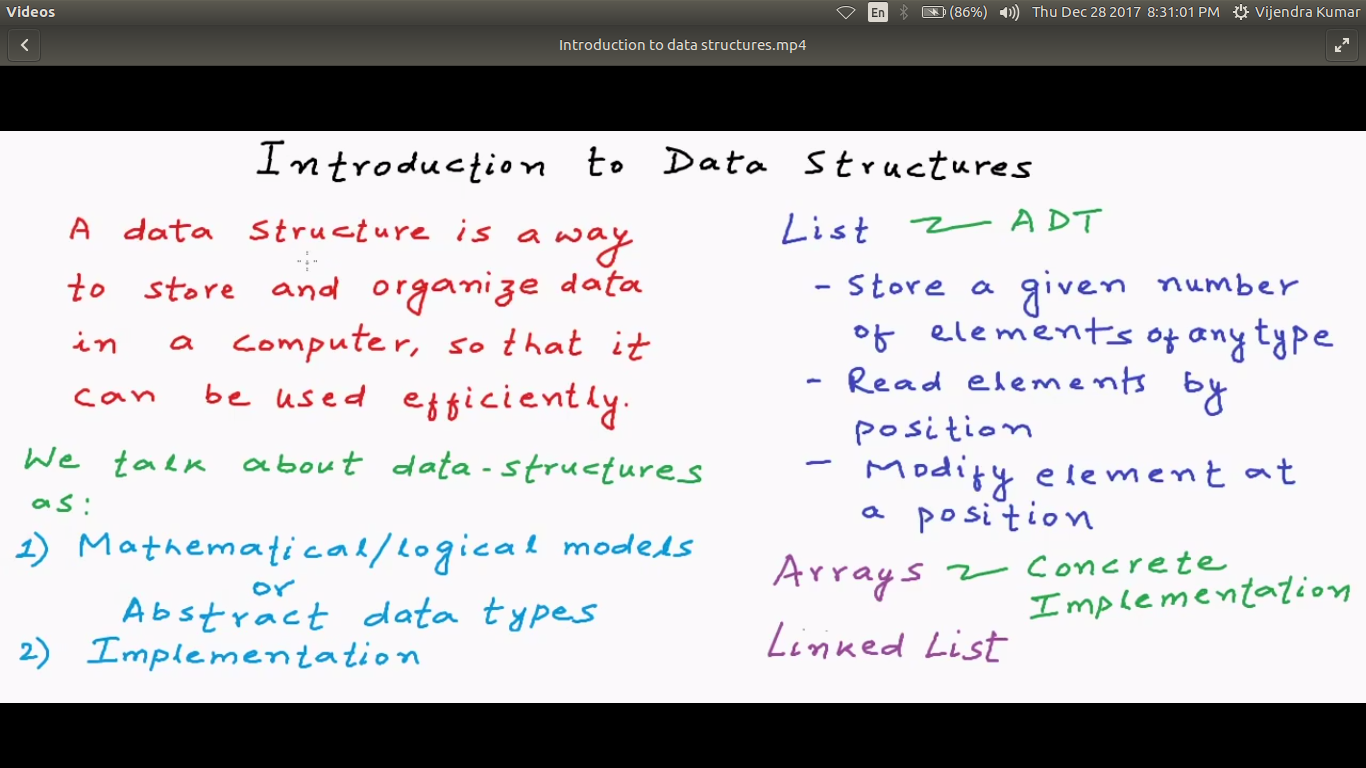 Videos
En
(86%)
Thu Dec 28 2017 8:31:01 PM
Vijendra Kumar
Introduction to data structures.mp4
Introduction to Data Structures
A data structure is a way
to store and organize data
in a computer, so that it
can be used efficiently.
We talk about data-structures
as:
1) Mathematical/logical models
or
Abstract data types
2) Implementation
List ADT
- Store a given number
of elements of any type
- Read elements by
position
- Modify element at
a position
Arrays Concrete
Implementation
Linked List